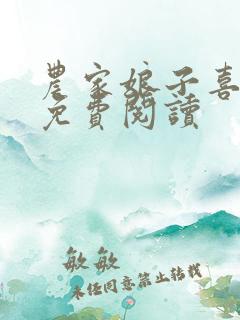 農家娘子喜
免費閱讀
敏敏
未經同意禁止轉載